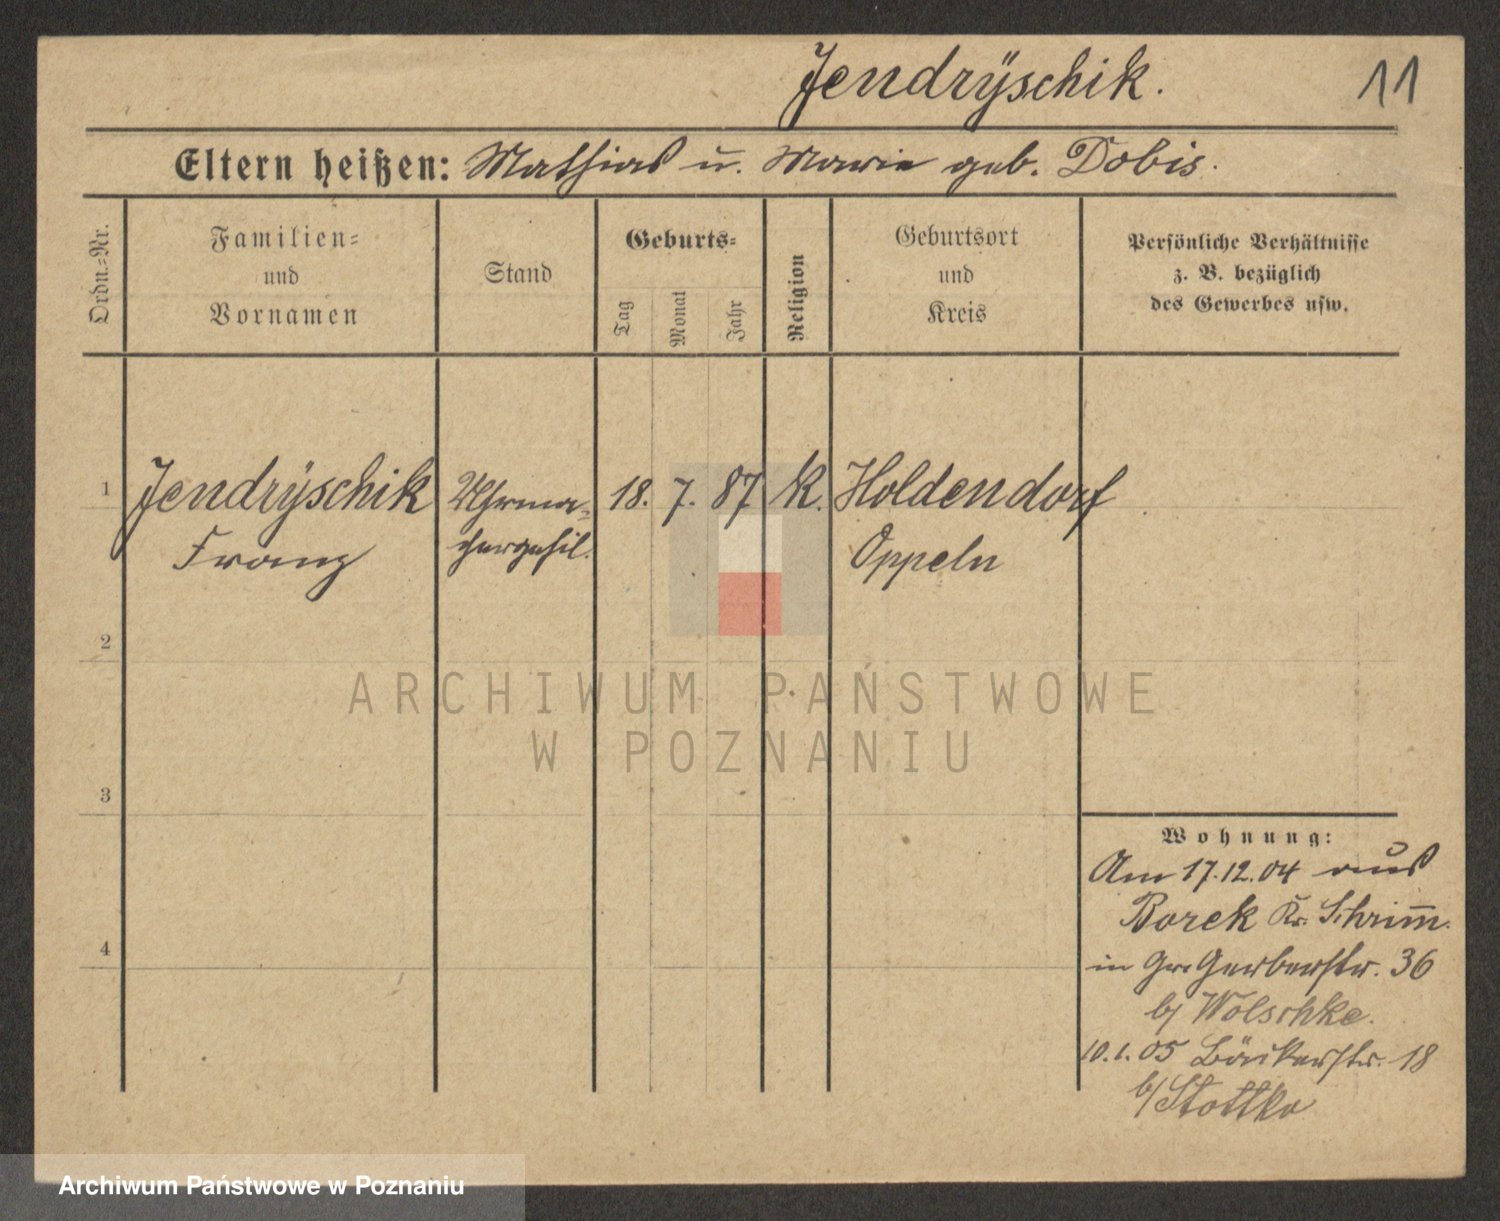 Jendrÿschik.
11
Eltern heißen: Mathias u. Marie geb. Dobis.
Ordn.=Nr.
Familien=
und
Vornamen
Stand
Geburts=
Tag
Monat
Jahr
Religion
Geburtsort
und
Kreis
Persönliche Verhältnisse
z. B. bezüglich
des Gewerbes usw.
1 Jendrÿschik Uhrma= 18. 7. 87 K. Holdendorf
Franz chergehil. Oppeln
2
ARCHIWUM PAŃSTWOWE
W POZNANIU
3
Wohnung:
Am 17.12.04 aus
Borek Kr. Schrim̅.
4
in Gr. Gerberstr. 36
b/ Wolschke.
10.1.05 Bäckerstr. 18
b/ Stottko
Archiwum Państwowe w Poznaniu